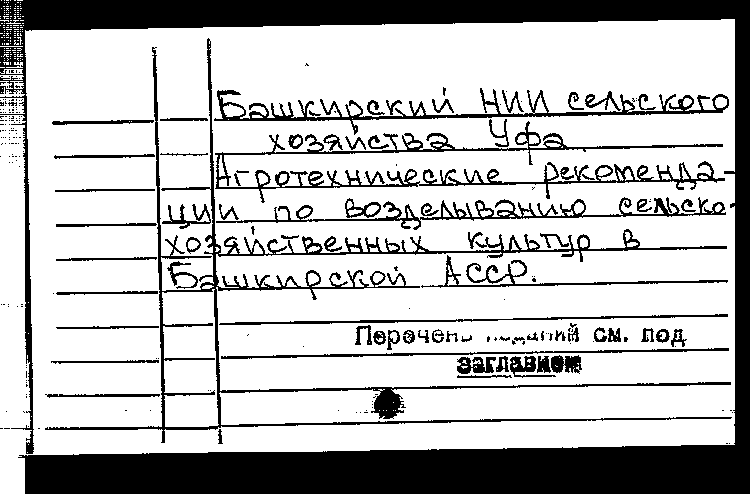 Башкирский НИИ сельского
хозяйства Уфа.
Агротехнические рекоменда-
ции по возделыванию сельско-
хозяйственных культур в
Башкирской АССР.
Перечень изданий см. под
заглавием